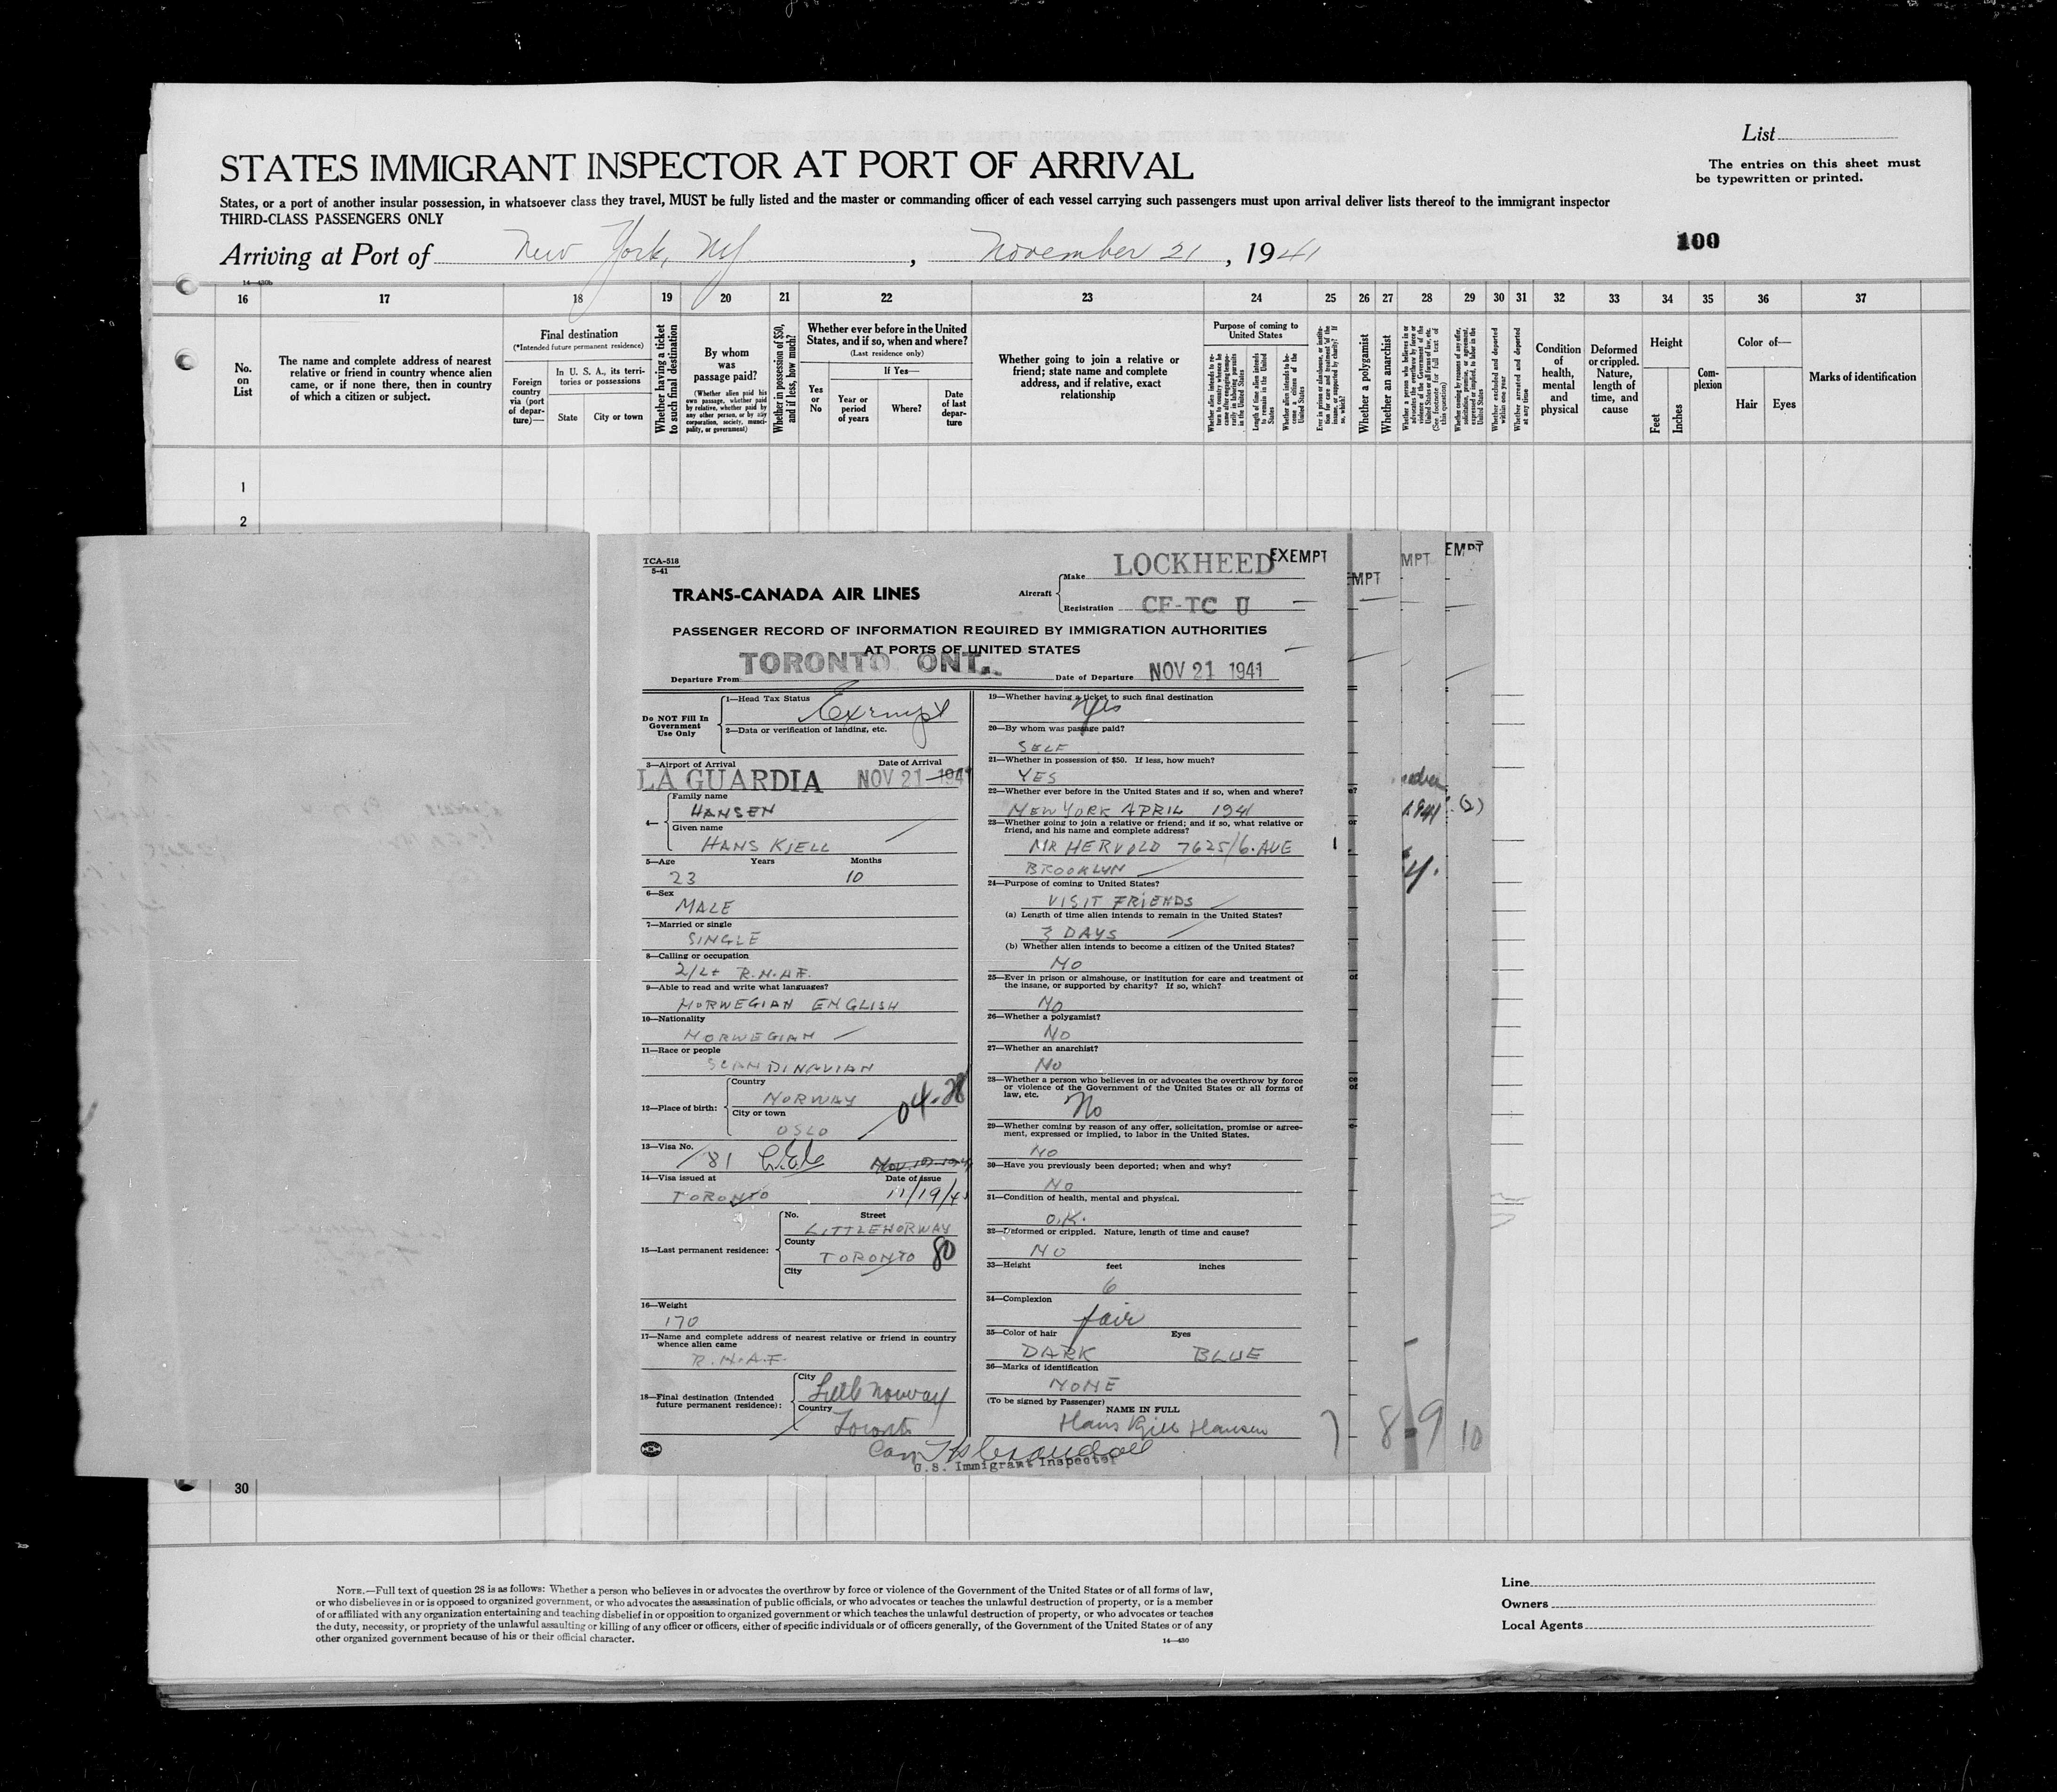 List
STATES IMMIGRANT INSPECTOR AT PORT OF ARRIVAL
The entries on this sheet must
be typewritten or printed.
States, or a port of another insular possession, in whatsoever class they travel, MUST be fully listed and the master or commanding officer of each vessel carrying such passengers must upon arrival deliver lists thereof to the immigrant inspector
THIRD-CLASS PASSENGERS ONLY
100
Arriving at Port of New York, NY, November 21, 1941
14—430b
16 17 18 19 20 21 22 23 24 25 26 27 28 29 30 31 32 33 34 35 36 37
No. on List
The name and complete address of nearest
relative or friend in country whence alien
came, or if none there, then in country
of which a citizen or subject.
Final destination
(*Intended future permanent residence)
Foreign country via (port of departure)—
In U. S. A., its territories or possessions
State City or town
Whether having a ticket to such final destination
By whom was passage paid?
(Whether alien paid his own passage, whether paid by relative, whether paid by any other person, or by any corporation, society, municipality, or government)
Whether in possession of $50, and if less, how much?
Whether ever before in the United
States, and if so, when and where?
(Last residence only)
Yes or No
If Yes—
Year or period of years
Where?
Date of last departure
Whether going to join a relative or
friend; state name and complete
address, and if relative, exact
relationship
Purpose of coming to
United States
Whether alien intends to return to country whence he came after engaging temporarily in laboring pursuits in the United States
Length of time alien intends to remain in the United States
Whether alien intends to become a citizen of the United States
Whether a polygamist
Whether an anarchist
Whether excluded and deported within one year
Whether arrested and deported at any time
Condition of health, mental and physical
Deformed or crippled. Nature, length of time, and cause
Height
Feet Inches
Complexion
Color of—
Hair Eyes
Marks of identification
1
2
TCA-518
5-41
TRANS-CANADA AIR LINES
Aircraft
Make LOCKHEED
EXEMPT
Registration CF-TC U
MPT
MPT
EMPT
PASSENGER RECORD OF INFORMATION REQUIRED BY IMMIGRATION AUTHORITIES
AT PORTS OF UNITED STATES
Departure From TORONTO ONT.
Date of Departure NOV 21 1941
Do NOT Fill In
Government
Use Only
1—Head Tax Status Exempt
2—Data or verification of landing, etc.
3—Airport of Arrival Date of Arrival
LA GUARDIA NOV 21 194
4—
Family name
HANSEN
Given name
HANS KJELL
5—Age Years Months
23 10
6—Sex
MALE
7—Married or single
SINGLE
8—Calling or occupation
2/Lt R.N.A.F.
9—Able to read and write what languages?
NORWEGIAN ENGLISH
10—Nationality
NORWEGIAN
11—Race or people
SCANDINAVIAN
12—Place of birth:
Country
NORWAY
City or town
OSLO
13—Visa No.
181
14—Visa issued at Date of issue
TORONTO 11/19/41
15—Last permanent residence:
No. Street
LITTLENORWAY
County
TORONTO 80
City
16—Weight
170
17—Name and complete address of nearest relative or friend in country
whence alien came
R.N.A.F.
18—Final destination (Intended
future permanent residence):
City
Little Norway
Country
Toronto
Can
19—Whether having a ticket to such final destination
Yes
20—By whom was passage paid?
SELF
21—Whether in possession of $50. If less, how much?
YES
22—Whether ever before in the United States and if so, when and where?
NEW YORK APRIL 1941
23—Whether going to join a relative or friend; and if so, what relative or
friend, and his name and complete address?
MR HERVOLD 7625/6. AVE
BROOKLYN
24—Purpose of coming to United States?
VISIT FRIENDS
(a) Length of time alien intends to remain in the United States?
3 DAYS
(b) Whether alien intends to become a citizen of the United States?
NO
25—Ever in prison or almshouse, or institution for care and treatment of
the insane, or supported by charity? If so, which?
NO
26—Whether a polygamist?
NO
27—Whether an anarchist?
NO
28—Whether a person who believes in or advocates the overthrow by force
or violence of the Government of the United States or all forms of
law, etc.
No
29—Whether coming by reason of any offer, solicitation, promise or agree-
ment, expressed or implied, to labor in the United States.
NO
30—Have you previously been deported; when and why?
NO
31—Condition of health, mental and physical.
O.K.
32—Deformed or crippled. Nature, length of time and cause?
NO
33—Height feet inches
6
34—Complexion
fair
35—Color of hair Eyes
DARK BLUE
36—Marks of identification
NONE
(To be signed by Passenger)
NAME IN FULL
Hans Kjell Hansen
U.S. Immigrant Inspector
7 8 9 10
30
NOTE.—Full text of question 28 is as follows: Whether a person who believes in or advocates the overthrow by force or violence of the Government of the United States or of all forms of law,
or who disbelieves in or is opposed to organized government, or who advocates the assassination of public officials, or who advocates or teaches the unlawful destruction of property, or is a member
of or affiliated with any organization entertaining and teaching disbelief in or opposition to organized government or which teaches the unlawful destruction of property, or who advocates or teaches
the duty, necessity, or propriety of the unlawful assaulting or killing of any officer or officers, either of specific individuals or of officers generally, of the Government of the United States or of any
other organized government because of his or their official character.
14—430
Line
Owners
Local Agents